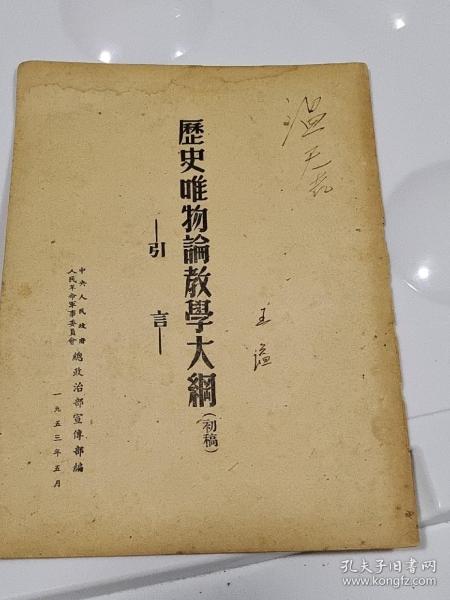 歷史唯物論教學大綱(初稿)
—引言—
中央人民政府
人民革命軍事委員會
總政治部宣傳部編
一九五三年五月
温
王
孔夫子旧书网
www.kongfz.com